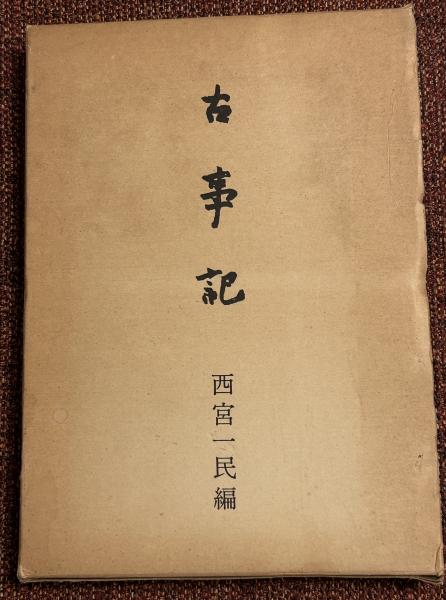 古事記
西宮一民編